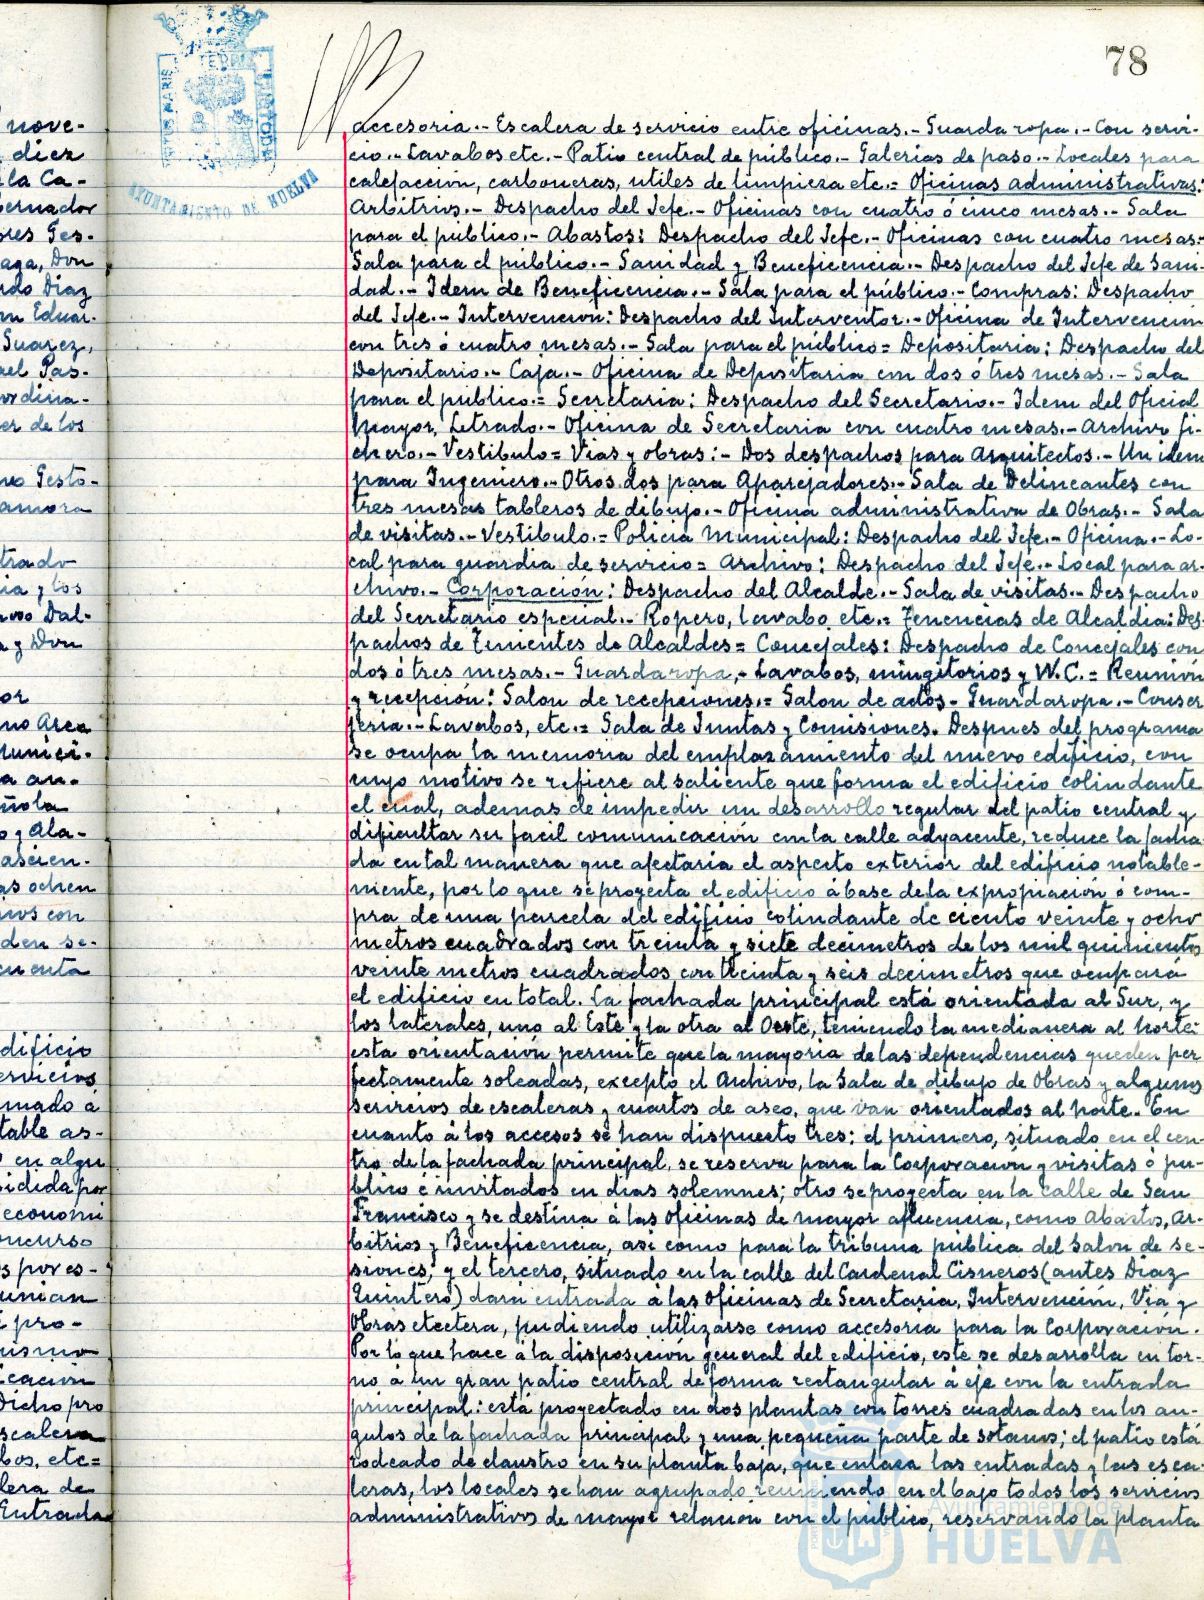 78
PORTUS MARIS ET TERRAE CUSTODIA
AYUNTAMIENTO DE HUELVA
nove-
diez
la Ca-
bernador
ores Ges-
aga, Don
ndo Diaz
n Eduar-
Suarez,
ael Pas-
ordina-
er de los
Gesto-
amora
trado
ia y los
Dal-
a y Don
or
no Area
Munici-
a an-
añola
o y Ala-
ascien-
as ochen
nos con
den se-
cuenta
dificio
ervicios
mado á
table as-
o en algu
sidida por
economi
oncurso
s por es-
unian
pro-
nismo
icacion
Dicho pro
scalera
bos, etc=
lera de
Entrada
accesoria.- Escalera de servicio entre oficinas.- Guarda ropa.- Con servi-
cio.- Lavabos etc.- Patio central de público.- Galerias de paso.- Locales para
calefacción, carboneras, utiles de limpieza etc.= Oficinas administrativas:
Arbitrios.- Despacho del Jefe.- Oficinas con cuatro ó cinco mesas.- Sala
para el público.- Abastos: Despacho del Jefe.- Oficinas con cuatro mesas.-
Sala para el público.- Sanidad y Beneficencia.- Despacho del Jefe de Sani
dad.- Idem de Beneficencia.- Sala para el público.- Compras: Despacho
del Jefe.- Intervencion: Despacho del Interventor.- Oficina de Intervencion
con tres ó cuatro mesas.- Sala para el público= Depositaria: Despacho del
Depositario.- Caja.- Oficina de Depositaria con dos ó tres mesas.- Sala
para el público.= Secretaria: Despacho del Secretario.- Idem del Oficial
Mayor, Letrado.- Oficina de Secretaria con cuatro mesas.- Archivo fi-
chero.- Vestibulo= Vias y obras:- Dos despachos para Arquitectos.- Un idem
para Ingeniero.- Otros dos para Aparejadores.- Sala de Delineantes con
tres mesas tableros de dibujo.- Oficina administrativa de Obras.- Sala
de visitas.- Vestibulo.= Policia Municipal: Despacho del Jefe.- Oficina.- Lo-
cal para guardia de servicio= Archivo: Despacho del Jefe.- Local para ar-
chivo.- Corporación: Despacho del Alcalde.- Sala de visitas.- Despacho
del Secretario especial.- Ropero, lavabo etc.= Tenencias de Alcaldia: Des-
pachos de Tenientes de Alcaldes= Concejales: Despacho de Concejales con
dos ó tres mesas.- Guardaropa,- Lavabos, mingitorios y W.C.= Reunión
y recepción: Salon de recepciones.= Salon de actos- Guardaropa.- Conser
jeria.- Lavabos, etc.= Sala de Juntas y Comisiones. Despues del programa
se ocupa la memoria del emplazamiento del nuevo edificio, con
cuyo motivo se refiere al saliente que forma el edificio colindante
el cual, ademas de impedir un desarrollo regular del patio central y
dificultar su facil comunicación con la calle adyacente, reduce la facha
da en tal manera que afectaria el aspecto exterior del edificio notable-
mente, por lo que se proyecta el edificio á base de la expropiación ó com-
pra de una parcela del edificio colindante de ciento veinte y ocho
metros cuadrados con treinta y siete decimetros de los mil quinientos
veinte metros cuadrados con treinta y seis decimetros que ocupará
el edificio en total. La fachada principal está orientada al Sur, y
los laterales, uno al Este y la otra al Oeste, teniendo la medianera al Norte:
esta orientación permite que la mayoria de las dependencias queden per
fectamente soleadas, excepto el Archivo, la Sala de dibujo de Obras y algunos
servicios de escaleras y cuartos de aseo, que van orientados al norte. En
cuanto á los accesos se han dispuesto tres: el primero, situado en el cen-
tro de la fachada principal, se reserva para la Corporacion y visitas ó pu-
blico é invitados en dias solemnes; otro se proyecta en la calle de San
Francisco y se destina á las oficinas de mayor afluencia, como Abastos, Ar-
bitrios y Beneficencia, así como para la tribuna pública del Salon de se-
siones; y el tercero, situado en la calle del Cardenal Cisneros (antes Diaz
Quintero) dará entrada á las oficinas de Secretaria, Intervención, Via y
Obras etcetera, pudiendo utilizarse como accesoria para la Corporacion.
Por lo que hace á la disposición general del edificio, este se desarrolla en tor-
no á un gran patio central de forma rectangular á eje con la entrada
principal: está proyectado en dos plantas con torres cuadradas en los an-
gulos de la fachada principal y una pequeña parte de sotanos; el patio está
rodeado de claustro en su planta baja, que enlaza las entradas y las esca-
leras, los locales se han agrupado reuniendo en el bajo todos los servicios
administrativos de mayor relacion con el público, reservando la planta
Ayuntamiento de
HUELVA